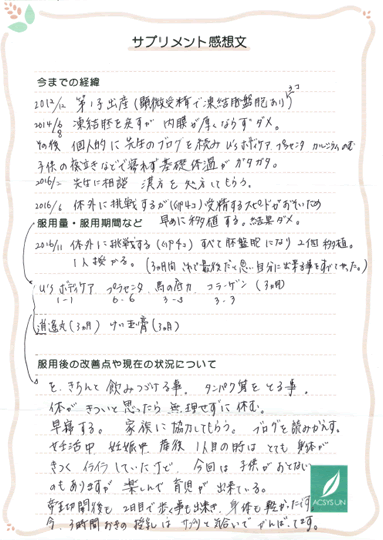 サプリメント感想文
今までの経緯
2013/12 第1子出産(顕微受精で凍結胚盤胞あり)3コ
2014/6 8 凍結胚を戻すが内膜が厚くならずダメ。
その後 個人的に先生のブログを読み U'sボディケア プラセンタ カルシウム のむ
子供の夜泣きなどで寝れず基礎体温がガタガタ。
2016/2 先生に相談 漢方を処方してもらう。
2016/6 体外に挑戦するが(GP4コ)受精するスピードがおそいため
服用量・服用期間など 早めに移植する。結果ダメ。
2016/11 体外に挑戦する(GP4コ)すべて胚盤胞になり2個移植。
1人授かる。(3ヵ月間 これで最後だと思い自分に出来る事をすべてやった。)
U'sボディケア プラセンタ 馬の底力 コラーゲン (3ヵ月)
1-1 6-6 3-3 3-3
逍遥丸(3ヵ月) (3ヵ月)
服用後の改善点や現在の状況について
を、きちんと飲みつづける事。タンパク質をとる事。
体がきついと思ったら無理せずに休む。
早寝する。家族に協力してもらう。ブログを読みかえす。
妊活中 妊娠中 産後 1人目の時はとても身体が
きつくイライラしていたけど、今回は子供がおとなしい
のもありますが楽しんで育児が出来ている。
帝王切開後も2日目で歩く事も出来、身体も軽かったです
今、3時間おきの授乳はサプリを飲いでがんばってます。
ACSYS UN